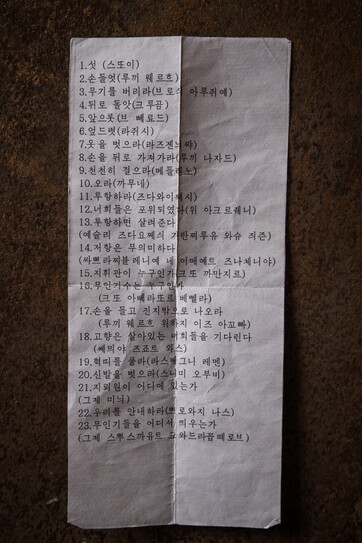 1.섯 (스또이)
2.손들엇(루끼 웨르흐)
3.무기를 버리라(브로스 아루쥐예)
4.뒤로 돌앗(크루꼼)
5.앞으롯(브 뻬료드)
6.엎드렷(라쥐시)
7.옷을 벗으라(라즈젠느쌰)
8.손을 뒤로 가져가라(루끼 나자드)
9.천천히 걸으라(메들렌노)
10.오라(까무네)
11.투항하라(즈다와이쩨시)
12.너희들은 포위되였다(위 아크르줴니)
13.투항하면 살려준다
(예슬리 즈다요쩨쓰 가란찌루유 와슈 쥐즌)
14.저항은 무의미하다
(싸쁘라찌블레니예 네 이메예트 즈나체니야)
15.지휘관이 누구인가(크또 까만지르)
16.무인기수는 누구인가
(크또 아뻬라또르 베쁠라)
17.손을 들고 진지밖으로 나오라
(루끼 웨르흐 위하지 이즈 아꼬빠)
18.고향은 살아있는 너희들을 기다린다
(쎄믜야 즈죠트 와스)
19.혁띠를 풀라(라스쩨그니 레멘)
20.신발을 벗으라(스니미 오부비)
21.지뢰원이 어디에 있는가
(그제 미늬)
22.우리를 안내하라(쁘로와지 나스)
23.무인기들을 어디서 띄우는가
(그제 스뿌스까유트 드와드라꼽떼로브)